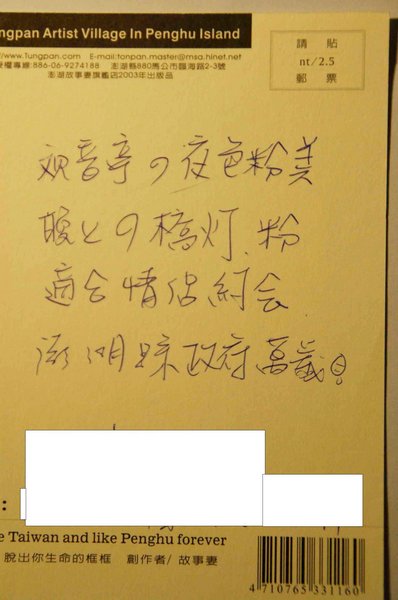 ngpan Artist Village In Penghu Island
//www.Tungpan.com E-mail:tonpan.master@msa.hinet.net
授權專線:886-06-9274188 澎湖縣880馬公市臨海路2-3號
澎湖故事妻旗艦店2003年出版品
請貼
nt/2.5
郵票
观音亭の夜色粉美
上の橋灯,粉
適合情侶約会
澎湖县政府萬歲!
e Taiwan and like Penghu forever
脫出你生命的框框 創作者/故事妻
4 710765 331160